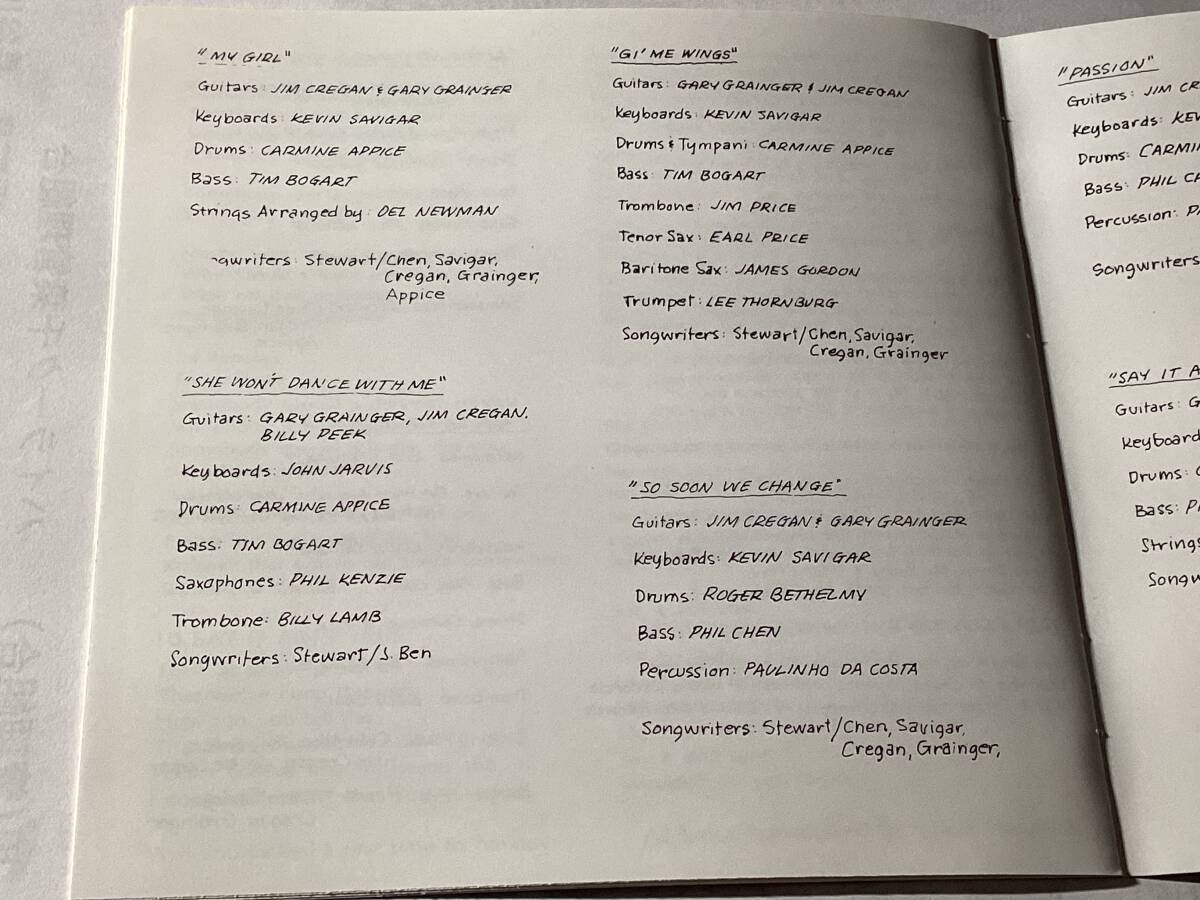 "MY GIRL"
Guitars: JIM CREGAN & GARY GRAINGER
Keyboards: KEVIN SAVIGAR
Drums: CARMINE APPICE
Bass: TIM BOGART
Strings Arranged by: DEL NEWMAN
ngwriters: Stewart/Chen, Savigar,
Cregan, Grainger,
Appice
"SHE WON'T DANCE WITH ME"
Guitars: GARY GRAINGER, JIM CREGAN.
BILLY PEEK
Keyboards: JOHN JARVIS
Drums: CARMINE APPICE
Bass: TIM BOGART
Saxophones: PHIL KENZIE
Trombone: BILLY LAMB
Songwriters: Stewart/J. Ben
"GI' ME WINGS"
Guitars: GARY GRAINGER & JIM CREGAN
Keyboards: KEVIN SAVIGAR
Drums & Tympani: CARMINE APPICE
Bass: TIM BOGART
Trombone: JIM PRICE
Tenor Sax: EARL PRICE
Baritone Sax: JAMES GORDON
Trumpet: LEE THORNBURG
Songwriters: Stewart/Chen, Savigar,
Cregan, Grainger
"SO SOON WE CHANGE"
Guitars: JIM CREGAN & GARY GRAINGER
Keyboards: KEVIN SAVIGAR
Drums: ROGER BETHELMY
Bass: PHIL CHEN
Percussion: PAULINHO DA COSTA
Songwriters: Stewart/Chen, Savigar,
Cregan, Grainger,
"PASSION"
Guitars: JIM CR
Keyboards: KEV
Drums: CARMI
Bass: PHIL CH
Percussion: PA
Songwriters
"SAY IT A
Guitars: G
Keyboard
Drums: C
Bass: P
Strings
Songw